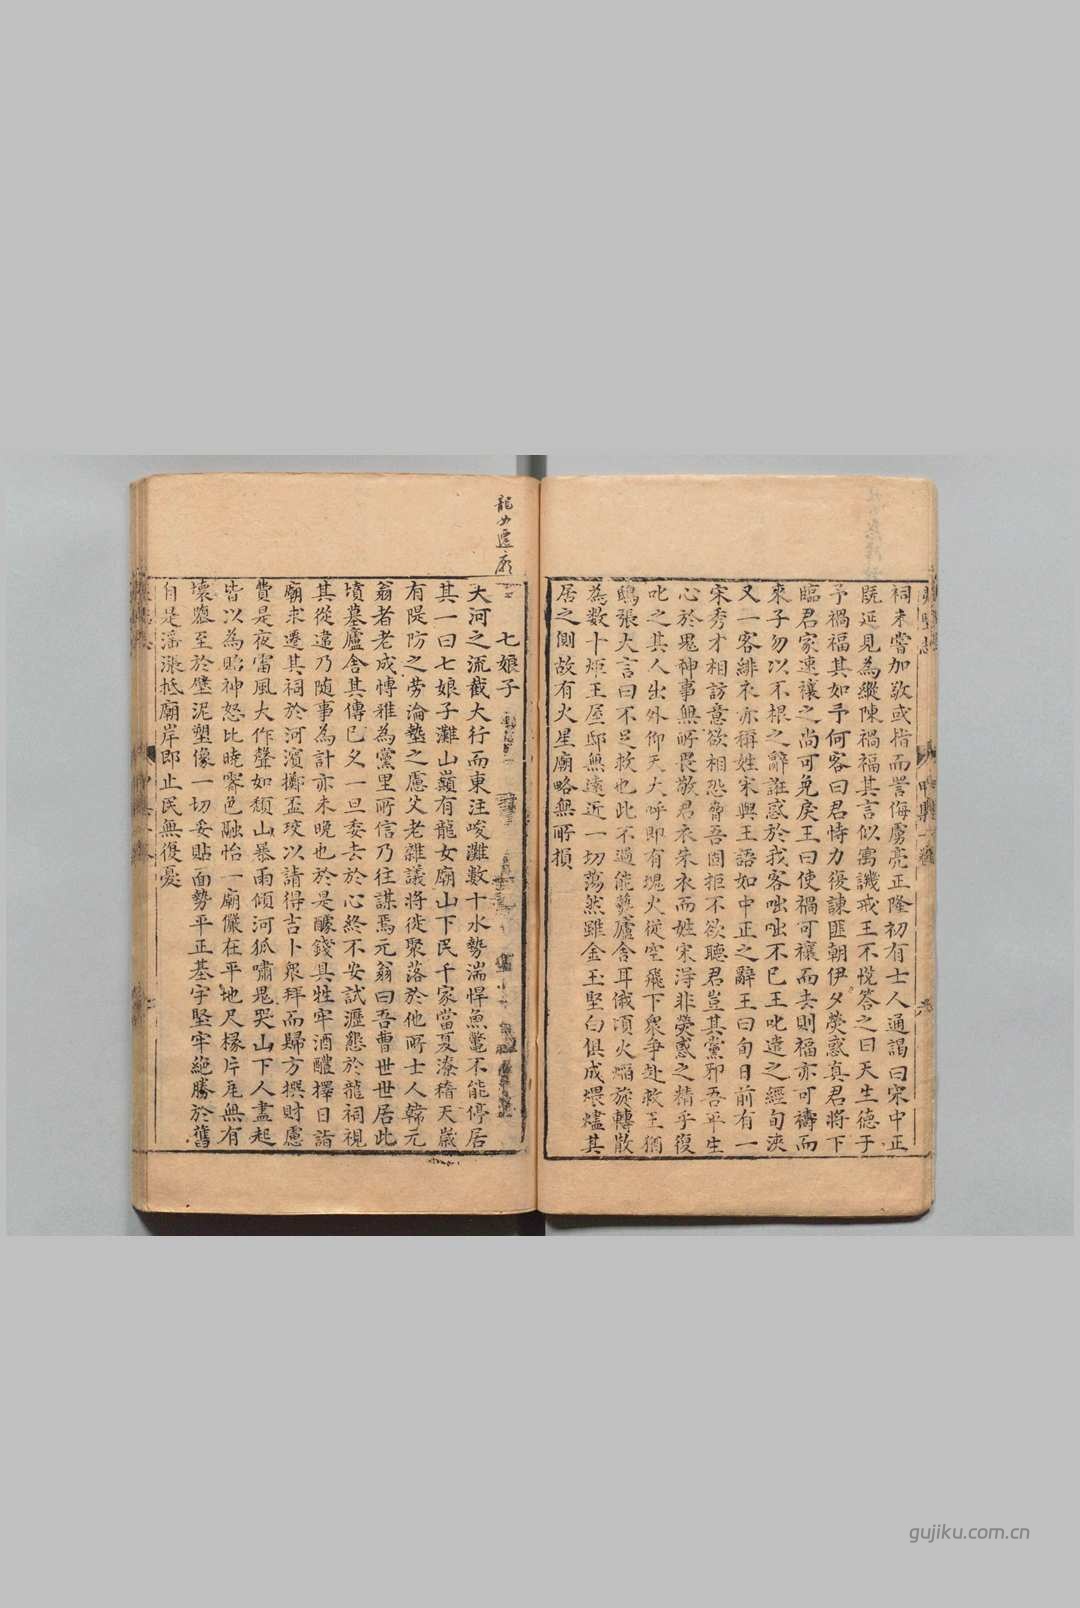 祠未嘗加敬或指而詈侮虜亮正隆初有士人通謁曰宋中正
既延見為縱陳禍福其言似寓譏戒王不悅答之曰天生德于
予禍福其如予何客曰君恃力復諫匪朝伊夕熒惑真君將下
臨君家速禳之尚可免戾王曰使禍可禳而去則福亦可禱而
來子勿以不根之辭誑惑於我客咄咄不已王叱遣之經旬浹
又一客緋衣亦稱姓宋與王語如中正之辭王曰旬日前有一
宋秀才相訪意欲相恐脅吾固拒不欲聽君豈其黨邪吾平生
心於鬼神事無所畏敬君衣朱衣而姓宋得非熒惑之精乎復
叱之其人出外仰天大呼即有塊火從空飛下眾爭赴救王猶
鴟張大言曰不足救也此不過能爇廬舍耳俄頃火熖旋轉散
為數十炬王屋邸無遠近一切蕩然雖金玉堅白俱成煨燼其
居之側故有火星廟略無所損
龍女遷廟
七娘子
大河之流截大行而東注峻灘數十水勢湍悍魚鼈不能停居
其一曰七娘子灘山巔有龍女廟山下民千家當夏潦稽天歲
有隄防之勞淪墊之慮父老雜議將徙聚落於他所士人韓元
翁者老成愽雅為黨里所信乃往謀焉元翁曰吾曹世世居此
墳墓廬舍其傳已久一旦委去於心終不安試瀝懇於龍祠視
其從違乃隨事為計亦未晚也於是醵錢具牲牢酒醴擇日詣
廟求遷其祠於河濱擲盃珓以請得吉卜眾拜而歸方撰財慮
費是夜雷風大作聲如頹山暴雨傾河狐嘯鬼哭山下人盡起
皆以為賜神怒比曉霽色融怡一廟儼在平地尺椽片瓦無有
壞隳至於壁泥塑像一切妥貼面勢平正基宇堅牢絶勝於舊
自是滛漲抵廟岸即止民無復憂
gujiku.com.cn